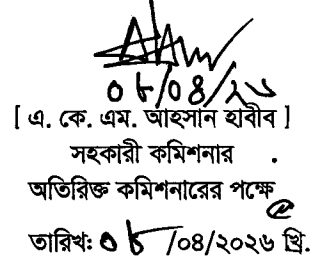 ০৮/০৪/২৬
[ এ. কে. এম. আহসান হাবীব ]
সহকারী কমিশনার
অতিরিক্ত কমিশনারের পক্ষে
তারিখঃ ০৮ /০৪/২০২৬ খ্রি.